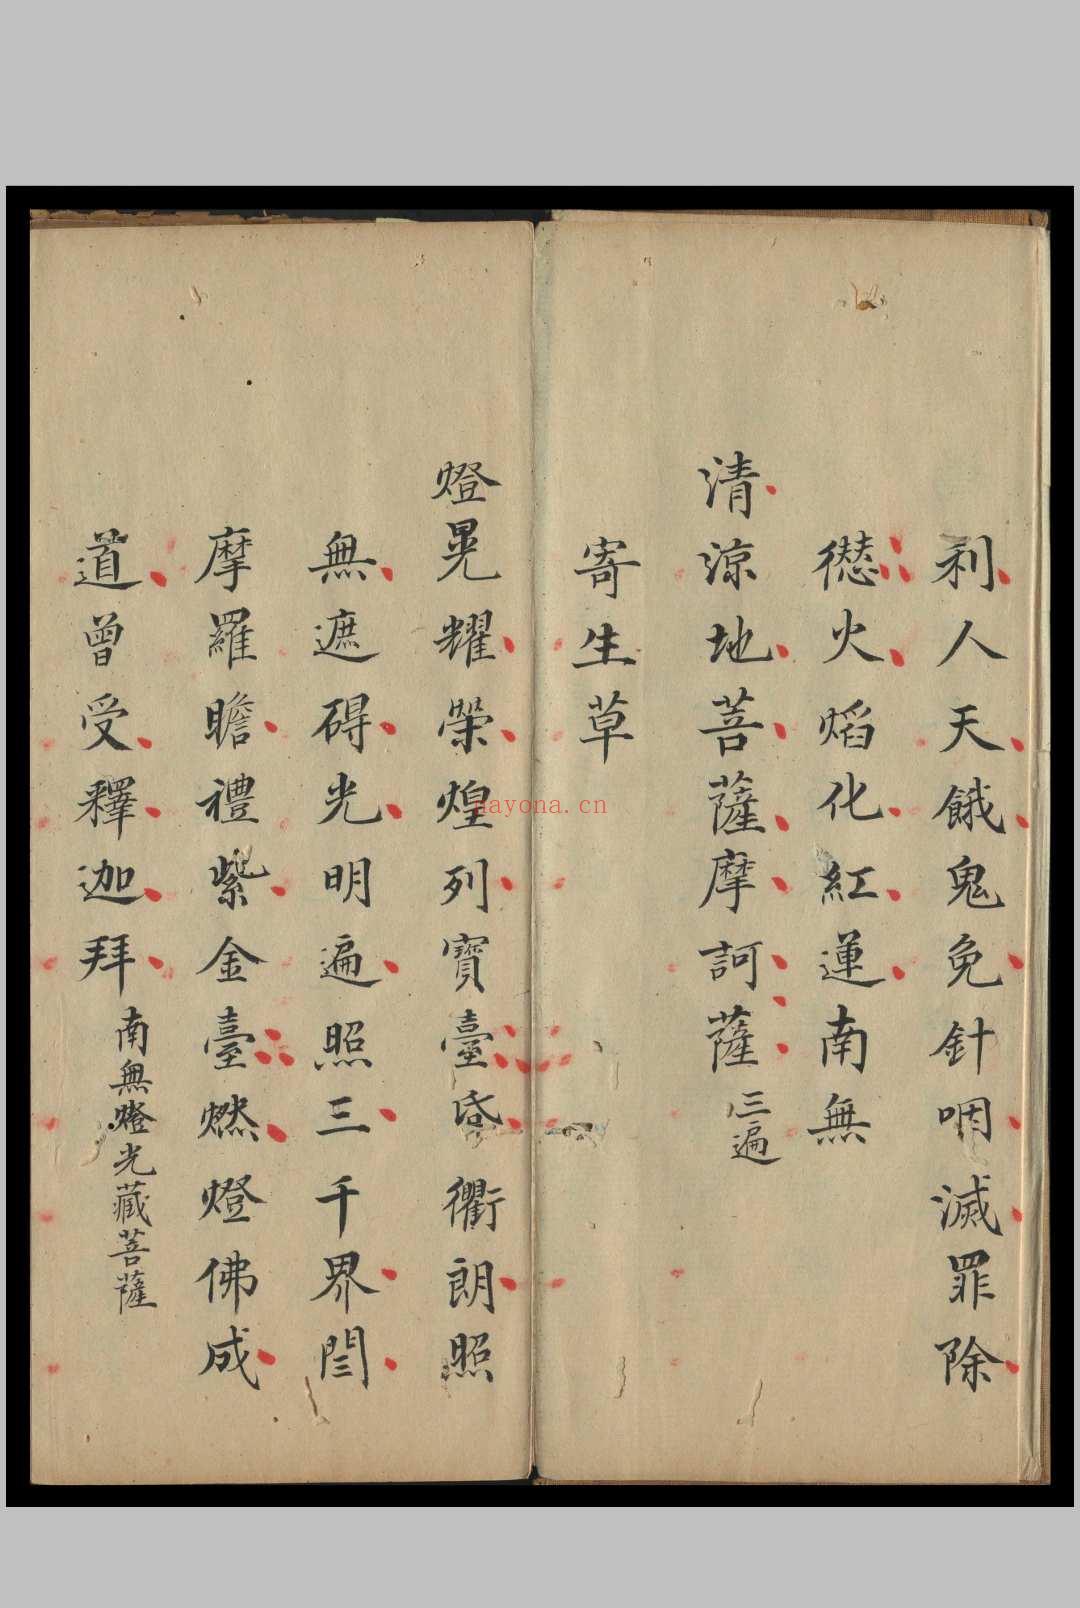 利人天餓鬼免針咽滅罪除
㣻火焰化紅蓮南無
清涼地菩薩摩訶薩三遍
寄生草
燈晃耀榮煌列寶臺昏衢朗照
無遮碍光明遍照三千界閆
摩羅瞻禮紫金臺燃燈佛成
道曾受釋迦拜南無燈光藏菩薩
nayona.cn